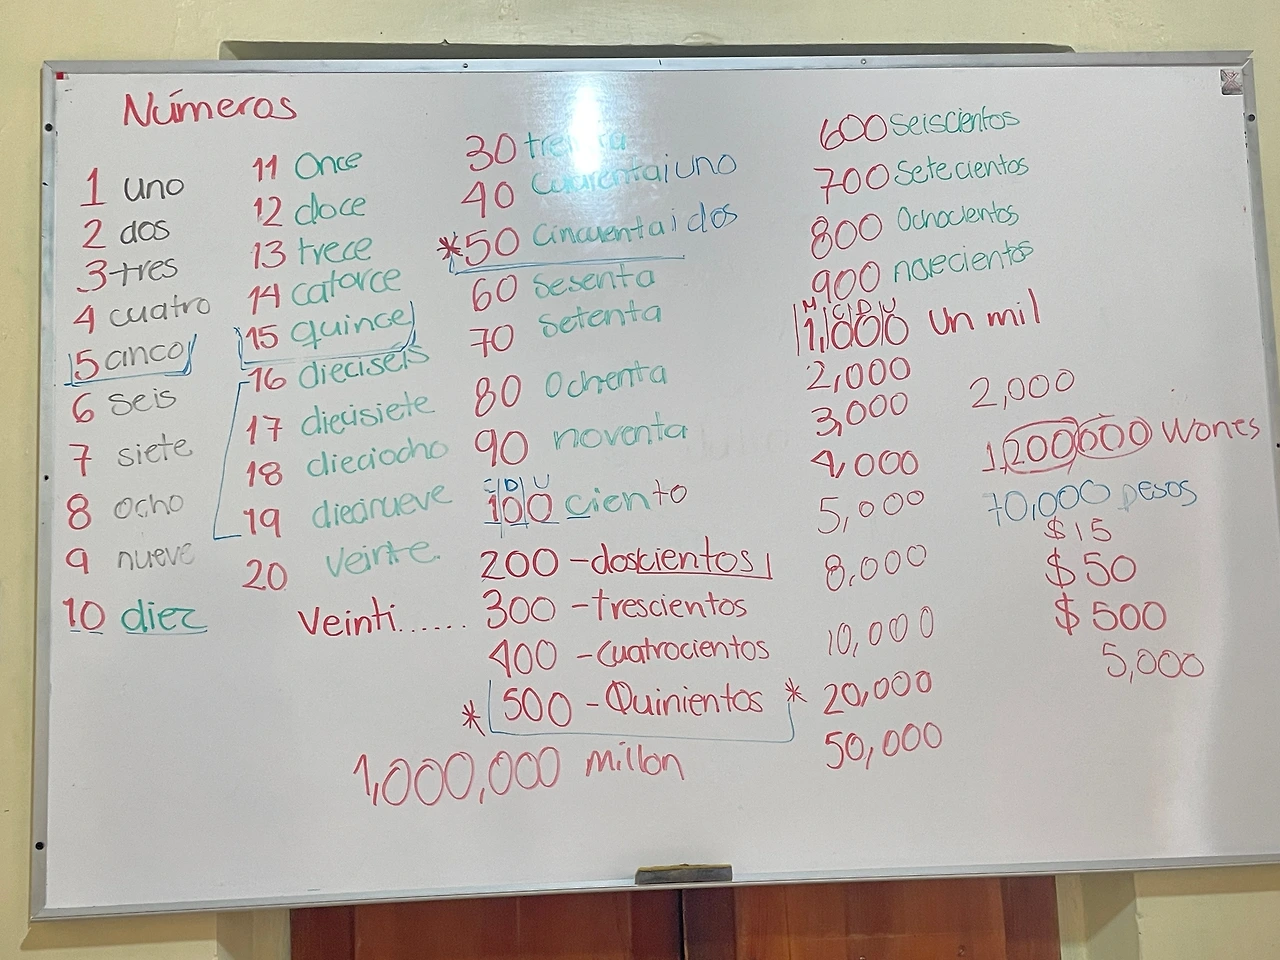 Números
1 uno
2 dos
3 tres
4 cuatro
5 cinco
6 seis
7 siete
8 ocho
9 nueve
10 diez
11 Once
12 doce
13 trece
14 catorce
15 quince
16 dieciseis
17 diecisiete
18 dieciocho
19 diecinueve
20 Veinte
Veinti......
30 treinta
40 Cuarentaiuno
*50 Cincuentaidos
60 Sesenta
70 Setenta
80 Ochenta
90 noventa
C D U
100 ciento
200 - doscientos
300 - trescientos
400 - Cuatrocientos
* 500 - Quinientos *
1,000,000 millon
600 Seiscientos
700 Setecientos
800 Ochocientos
900 novecientos
M C D U
1,000 Un mil
2,000
3,000
4,000
5,000
8,000
10,000
20,000
50,000
2,000
1,200,000 Wones
70,000 pesos
$15
$50
$500
5,000